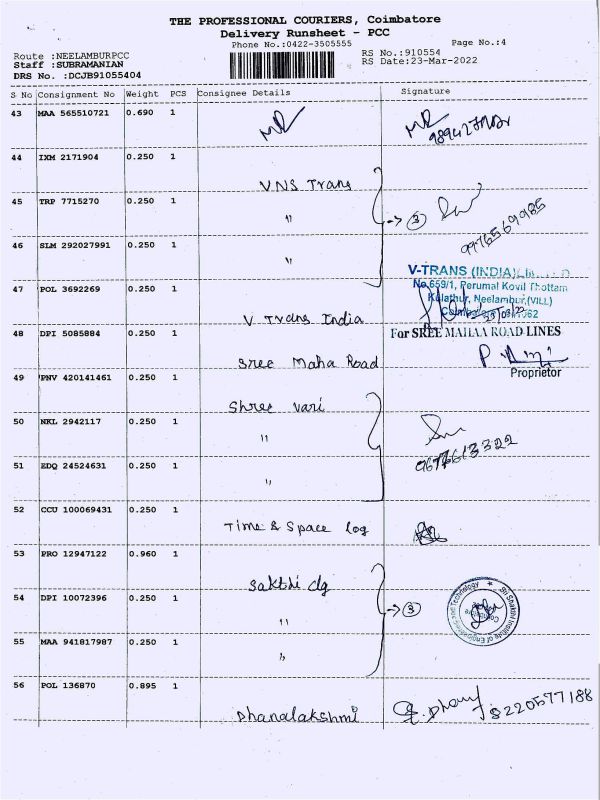 THE PROFESSIONAL COURIERS, Coimbatore
Delivery Runsheet - PCC
Phone No.:0422-3505555
Page No.:4
Route :NEELAMBURPCC
RS No.:910554
Staff :SUBRAMANIAN
RS Date:23-Mar-2022
DRS No. :DCJB91055404
S No Consignment No Weight PCS Consignee Details Signature
43 MAA 565510721 0.690 1
44 IXM 2171904 0.250 1
VNS Trans
45 TRP 7715270 0.250 1
"
→ 3
9976569985
46 SLM 292027991 0.250 1
"
V-TRANS (INDIA)
No.659/1, Perumal Kovil Thottam
47 POL 3692269 0.250 1
Kulathur, Neelambur,(VILL)
V Trans India
48 DPI 5085884 0.250 1
For SREE MAHAA ROAD LINES
Sree Maha Road
Proprietor
49 PNV 420141461 0.250 1
Shree vari
50 NKL 2942117 0.250 1
"
51 EDQ 24524631 0.250 1
"
52 CCU 100069431 0.250 1
Time & Space Log
53 PRO 12947122 0.960 1
Sakthi clg
54 DPI 10072396 0.250 1
→ 3
Sri Shakthi Institute of Engineering and Technology
"
55 MAA 941817987 0.250 1
"
56 POL 136870 0.895 1
Dhanalakshmi
8220577188